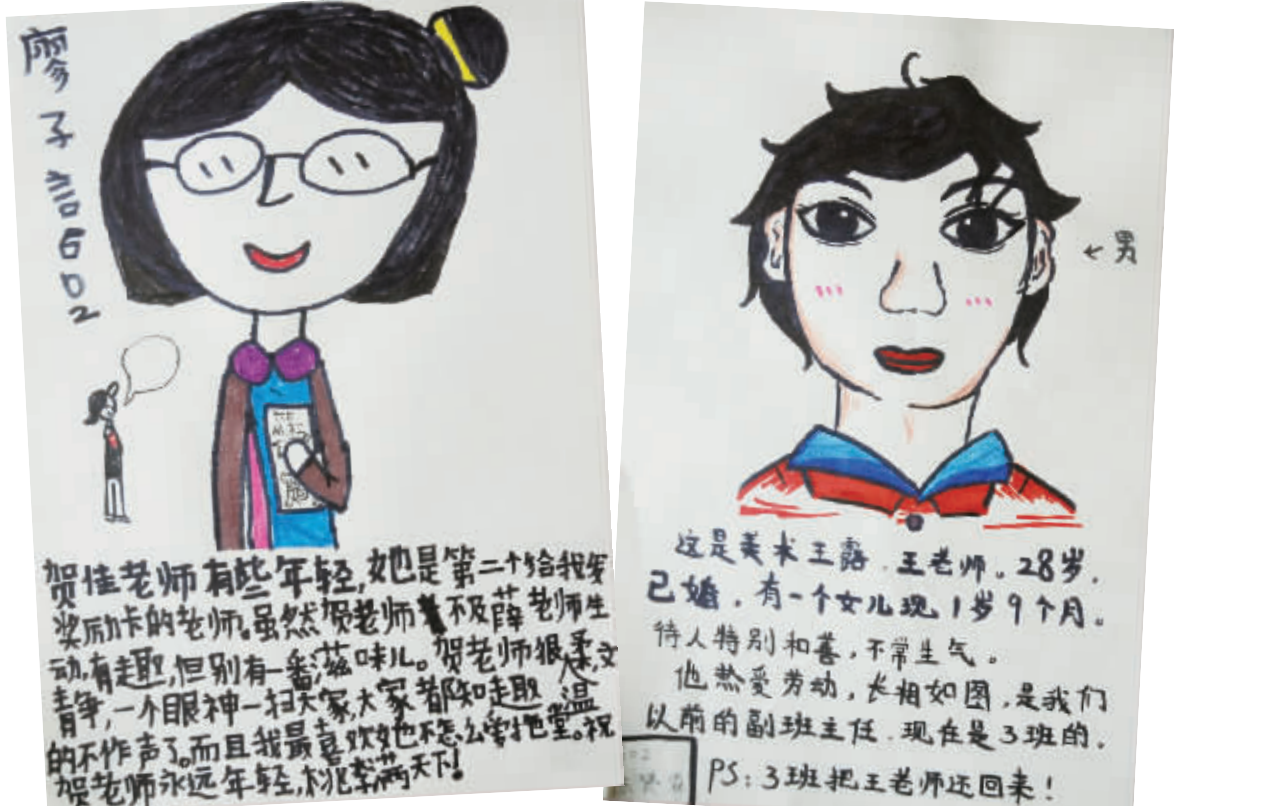 廖子言602
贺佳老师有些年轻,她是第二个给我发
奖励卡的老师。虽然贺老师不及薛老师生
动,有趣,但别有一番滋味儿。贺老师很温柔,文
静,一个眼神一扫大家,大家都知趣
的不作声了。而且我最喜欢她也不怎么爱拖堂。祝
贺老师永远年轻,桃李满天下!
←男
这是美术王露.王老师。28岁.
已婚.有一个女儿现1岁9个月。
待人特别和善,不常生气。
他热爱劳动,长相如图,是我们
以前的副班主任.现在是3班的.
PS:3班把王老师还回来!